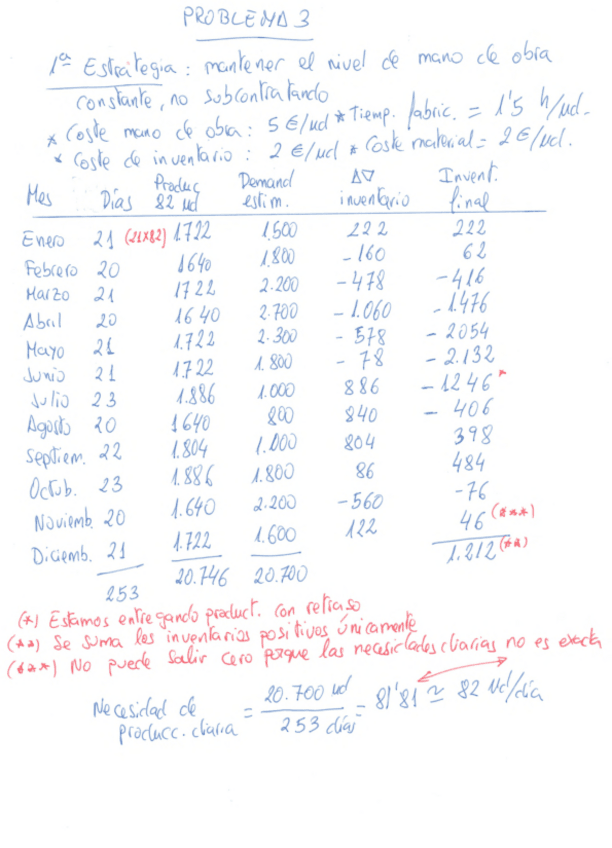 PROBLEMA 3
1ª Estrategia: mantener el nivel de mano de obra
constante, no subcontratando
* Coste mano de obra: 5 €/ud * Tiemp. fabric. = 1'5 h/ud.
* Coste de inventario: 2 €/ud * Coste material = 2 €/ud.
Mes Días Produc 82 ud Demand estim. Δ∇ inventario Invent. final
Enero 21 (21x82) 1.722 1.500 222 222
Febrero 20 1640 1.800 -160 62
Marzo 21 1722 2.200 -478 -416
Abril 20 1640 2.700 -1.060 -1.476
Mayo 21 1.722 2.300 -578 -2054
Junio 21 1.722 1.800 -78 -2.132
Julio 23 1.886 1.000 886 -1246 *
Agosto 20 1640 800 840 -406
Septiem. 22 1.804 1.000 804 398
Octub. 23 1.886 1.800 86 484
Noviemb. 20 1.640 2.200 -560 -76
Diciemb. 21 1.722 1.600 122 46 (***)
253 20.746 20.700 1.212 (**)
(*) Estamos entregando product. con retraso
(**) Se suma los inventarios positivos únicamente
(***) No puede salir cero porque las necesidades diarias no es exacta
Necesidad de producc. diaria = 20.700 ud / 253 días = 81'81 ≃ 82 Ud/día